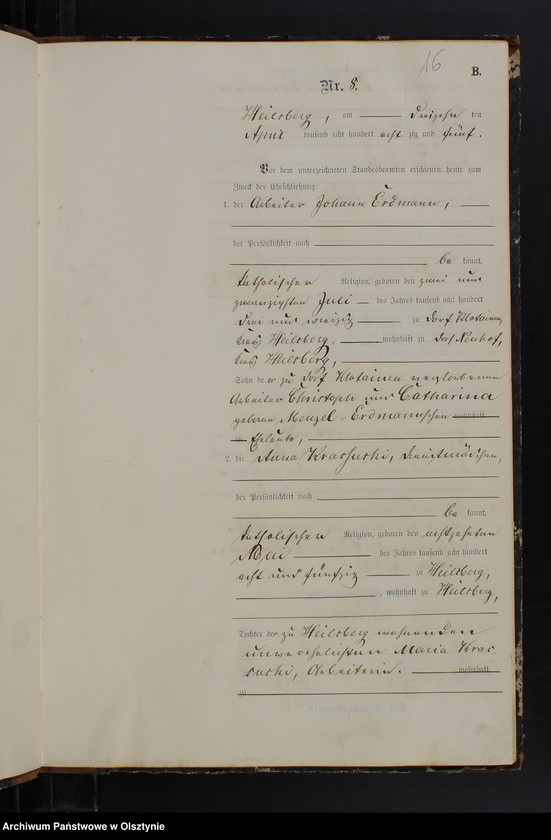 16
B.
Nr. 8.
Heilsberg, am dreizehn ten
April tausend acht hundert acht zig und fünf.
Vor dem unterzeichneten Standesbeamten erschienen heute zum
Zweck der Eheschließung:
1. der Arbeiter Johann Erdmann,
der Persönlichkeit nach
be kannt,
katholischer Religion, geboren den zwei und
zwanzigsten Juli des Jahres tausend acht hundert
drei und vierzig zu Dorf Klotainen,
Kreis Heilsberg, wohnhaft zu Dorf Neuhof,
Kreis Heilsberg,
Sohn der zu Dorf Klotainen verstorbenen
Arbeiter Christoph und Catharina
geborne Menzel-Erdmannschen wohnhaft
zu Eheleute,
2. die Anna Krassuski, Dienstmädchen,
der Persönlichkeit nach
be kannt,
katholischer Religion, geboren den achtzehnten
Mai des Jahres tausend acht hundert
acht und fünfzig zu Heilsberg,
, wohnhaft zu Heilsberg,
Tochter der zu Heilsberg wohnenden
unverehelichten Maria Kras
suski, Arbeiterin. wohnhaft
zu
Archiwum Państwowe w Olsztynie